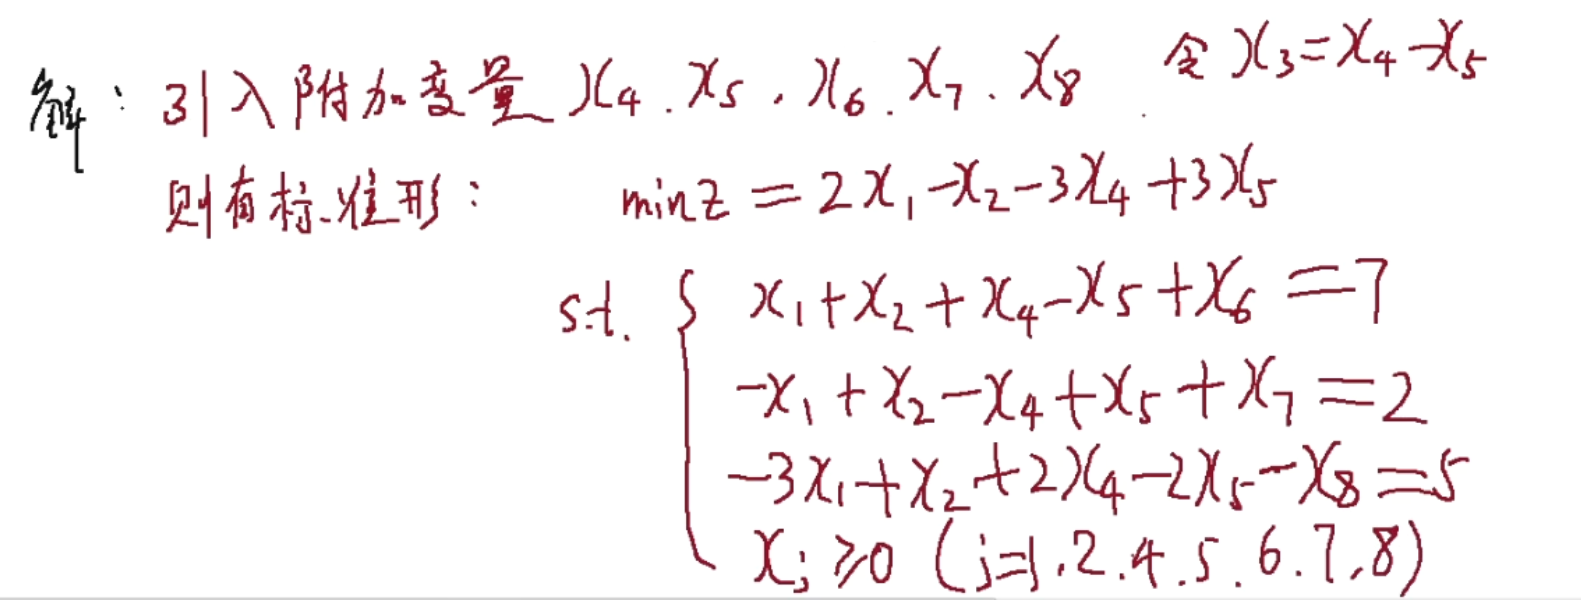 解：引入附加变量 x₄. x₅. x₆. x₇. x₈. 令 x₃=x₄-x₅
则有标准形： min z = 2x₁-x₂-3x₄+3x₅
s.t. { x₁+x₂+x₄-x₅+x₆=7
-x₁+x₂-x₄+x₅+x₇=2
-3x₁+x₂+2x₄-2x₅-x₈=5
xⱼ≥0 (j=1.2.4.5.6.7.8)